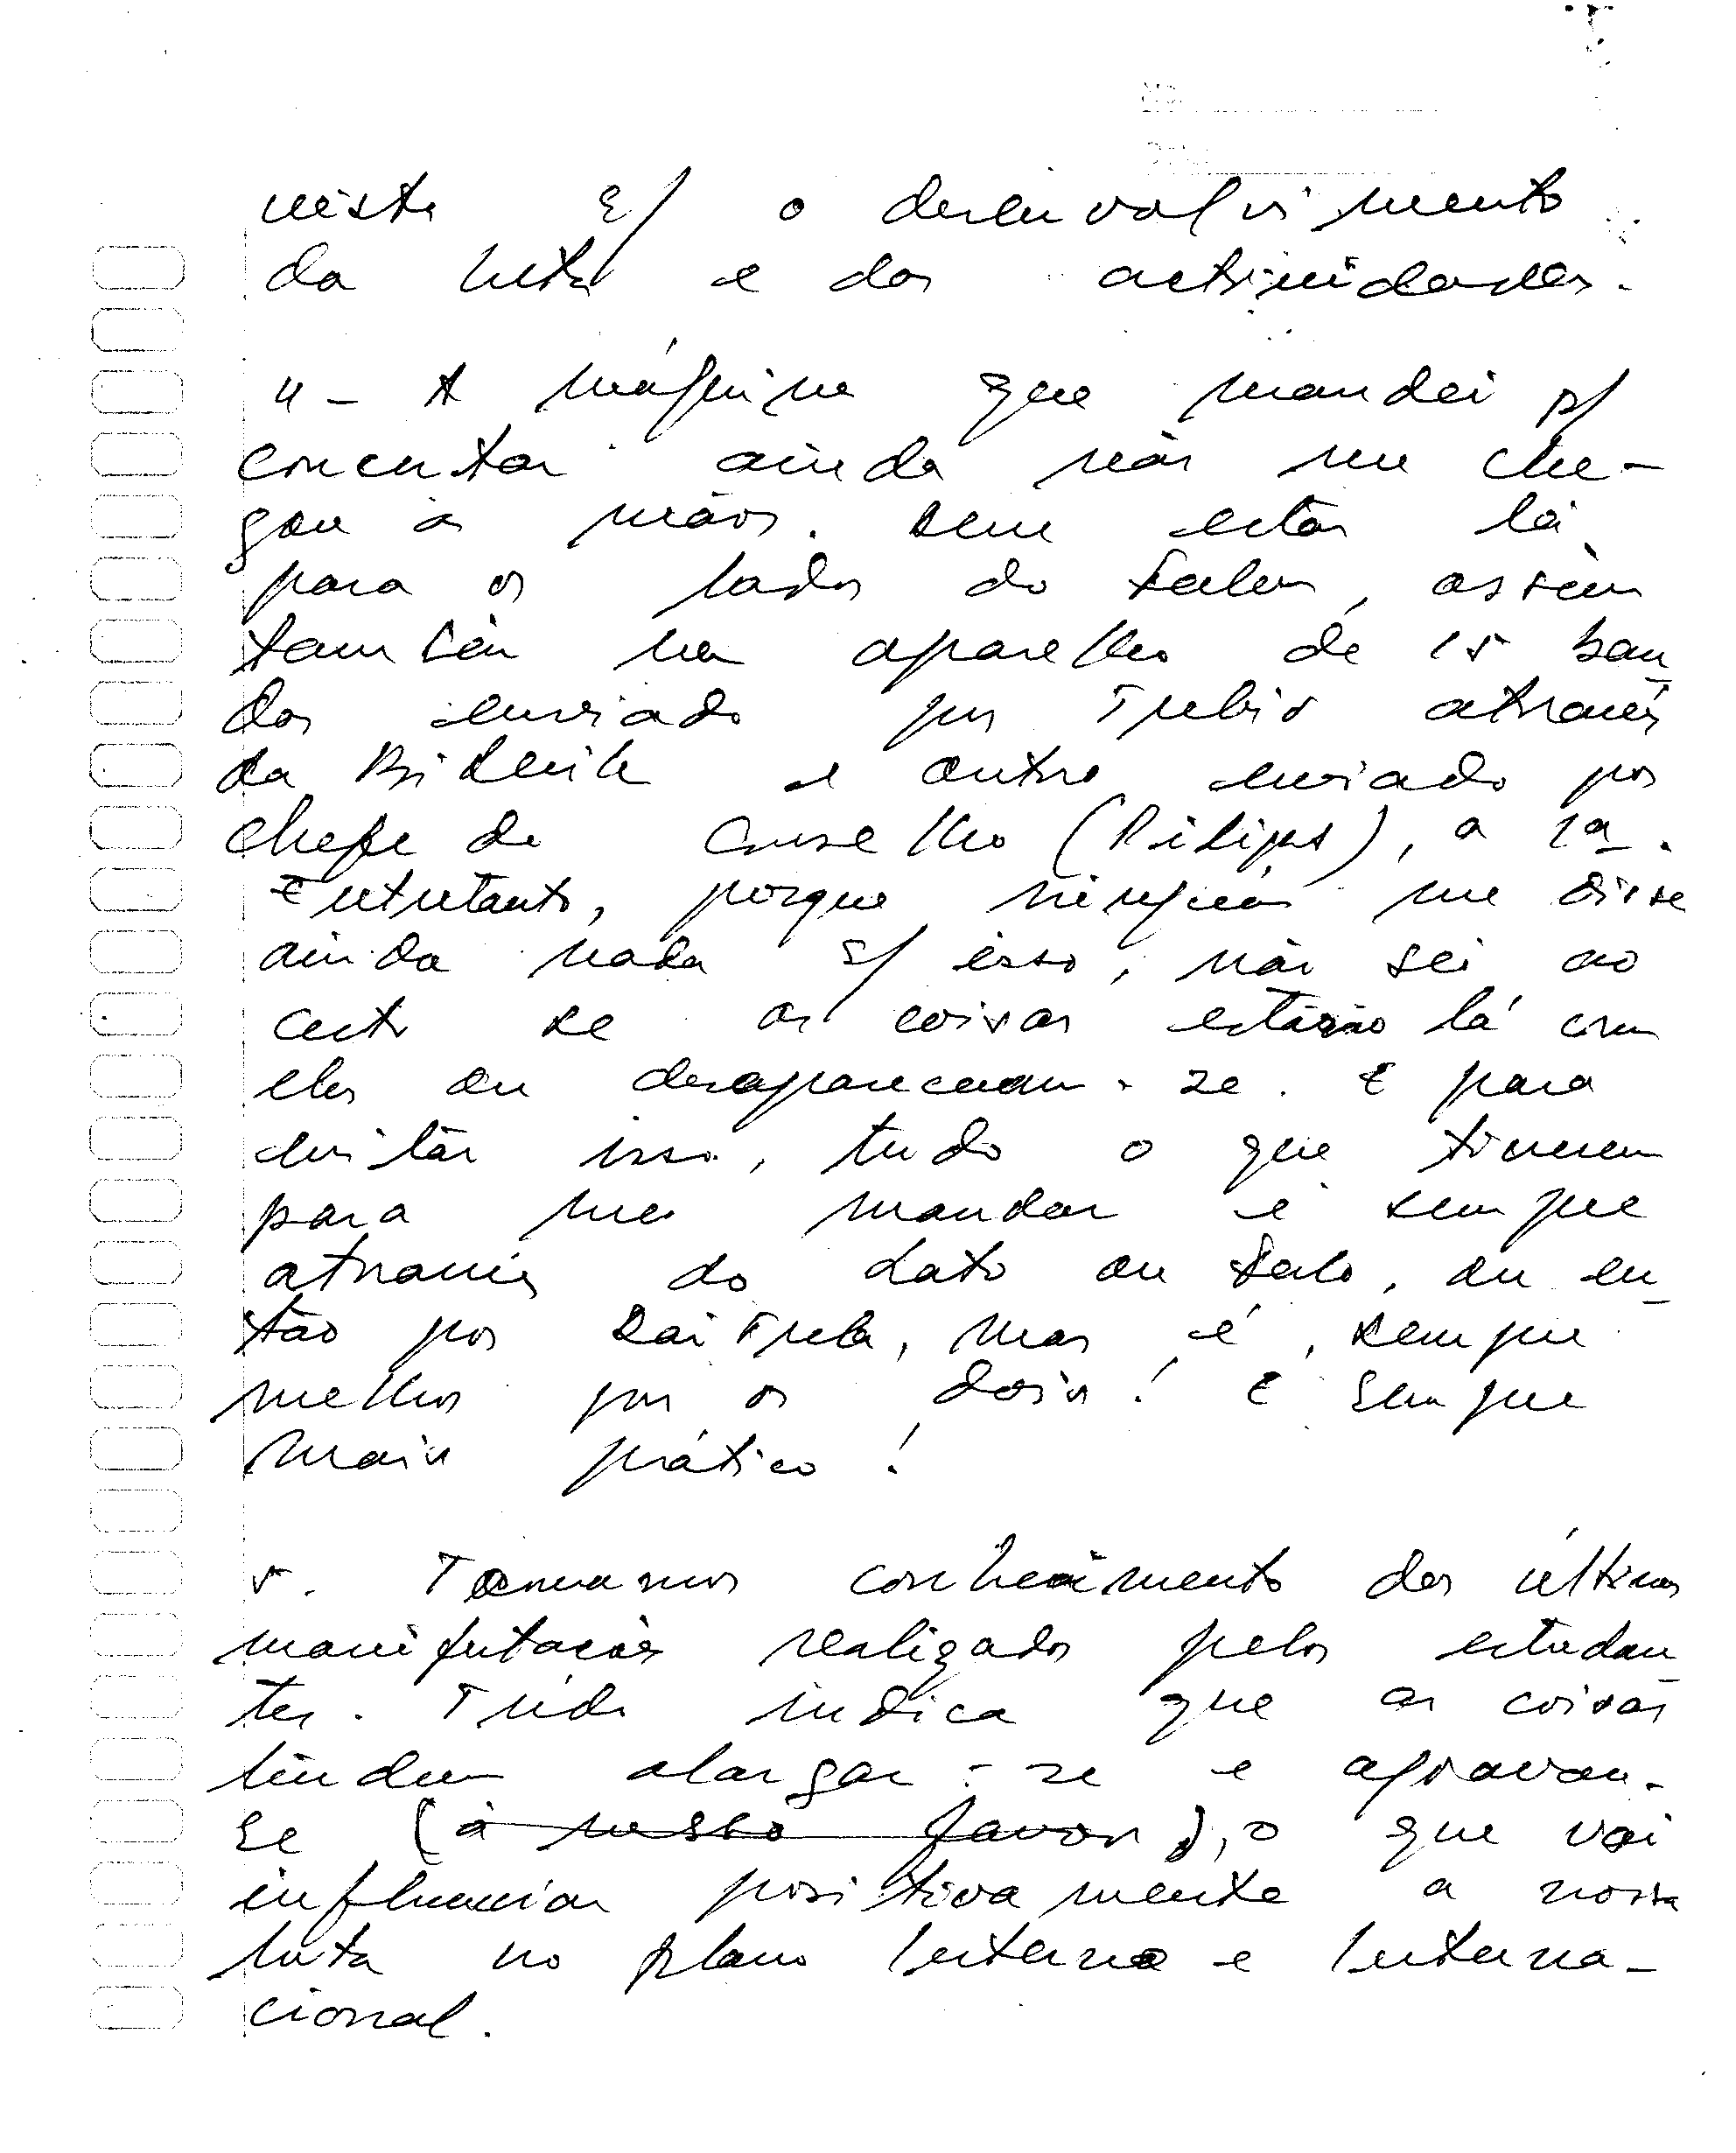 vista s/ o desenvolvimento
da luta e das actividades.
4 - A máquina que mandei p/
concertar ainda não me che-
gou às mãos. Deve estar lá
para os lados do Saler, assim
também um aparelho de 15 ban
das enviado por Tulir através
da Bi Leik e outro enviado por
chefe do Conselho (Pilips), a 1ª.
Entretanto, porque ninguém me disse
ainda nada s/ isso, não sei ao
certo se as coisas estarão lá com
eles ou desapareceram-se. E para
evitar isso, tudo o que tiverem
para me mandar é sempre
através do Lato ou Salo, ou en
tão por Kai Tula, mas é sempre
melhor por os dois! E sempre
mais prático!
5. Tomamos conhecimento das últimas
manifestações realizados pelos estudan
tes. Tudo indica que as coisas
tendem alargar-se e agravar-
se (à nosso favor), o que vai
influenciar positivamente a nossa
luta no plano Interno e Interna-
cional.